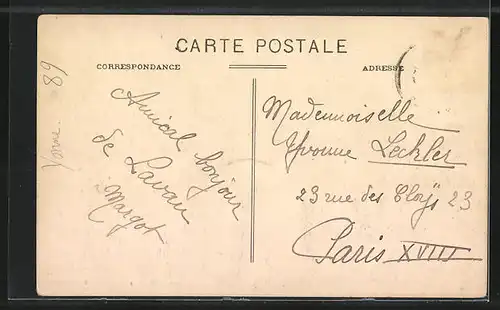 CARTE POSTALE
CORRESPONDANCE
ADRESSE
Yonne. 89
Amical bonjour
de Lavau
Margot
Mademoiselle
Yvonne Leckler
23 rue des Cloÿs 23
Paris XVIII